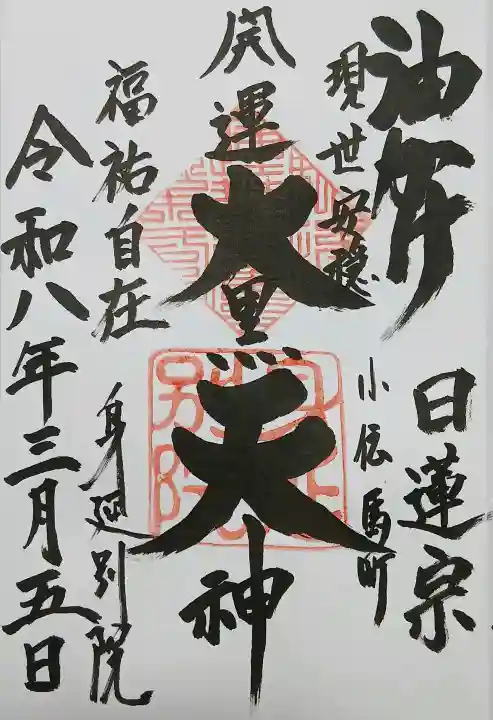 油摩
日蓮宗
現世安穏
小伝馬町
開運大黒天神
福祐自在
身延別院
令和八年三月五日
身延
別院